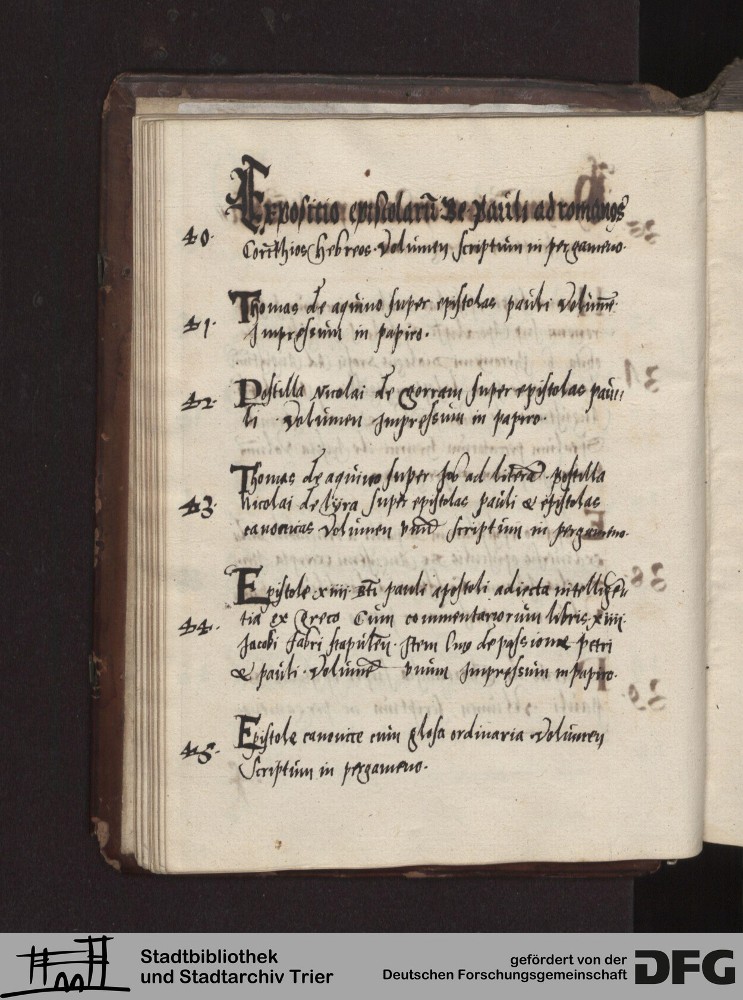 Expositio epistolarū Be Pauli ad romanos
40. Corīthios Hebreos. Volumen scriptum in pergameno.
Thomas de aquino super epistolas pauli Volumē
41. Impressum in papiro.
42. Postilla Nicolai de gorram super epistolas pau//
li Volumen Impressum in papiro.
Thomas de aquino super Job ad literā. Postilla
43. Nicolai de lyra super epistolas pauli & epistolas
canonicas Volumen vnū scriptum in pergameno.
Epistole xiiij bti pauli apostoli adiecta intelligen
44. tia ex Greco Cum commentariorum libris xiiij.
Jacobi fabri stapulēn. Item lino de passione petri
& pauli. Volumē vnum Impressum in papiro.
Epistole canonice cum glosa ordinaria Volumen
45. Scriptum in pergameno.
38
39
Stadtbibliothek
und Stadtarchiv Trier
gefördert von der
Deutschen Forschungsgemeinschaft
DFG